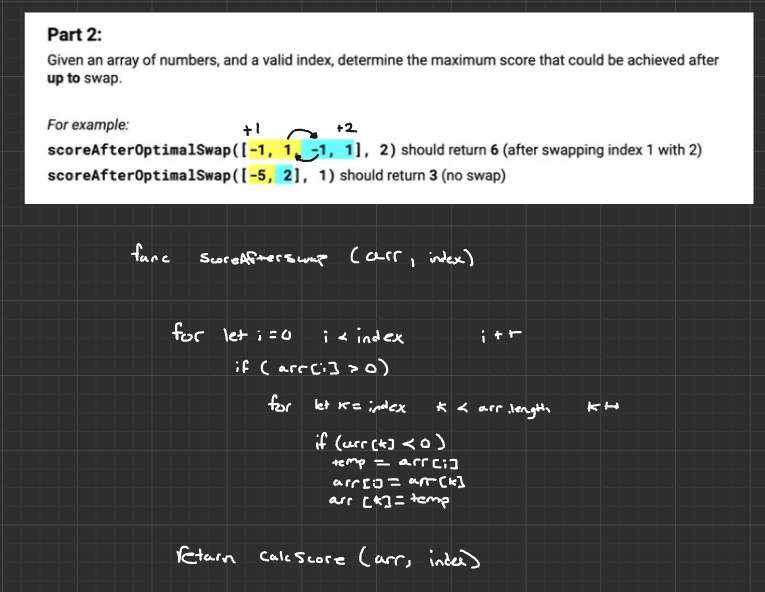 Part 2:
Given an array of numbers, and a valid index, determine the maximum score that could be achieved after
up to swap.
For example:
+1 +2
scoreAfterOptimalSwap([-1, 1, -1, 1], 2) should return 6 (after swapping index 1 with 2)
scoreAfterOptimalSwap([-5, 2], 1) should return 3 (no swap)
func scoreAfterSwap (arr, index)
for let i=0 i < index i++
if (arr[i] > 0)
for let k= index k < arr.length k++
if (arr[k] < 0)
temp = arr[i]
arr[i] = arr[k]
arr [k] = temp
return calcScore (arr, index)